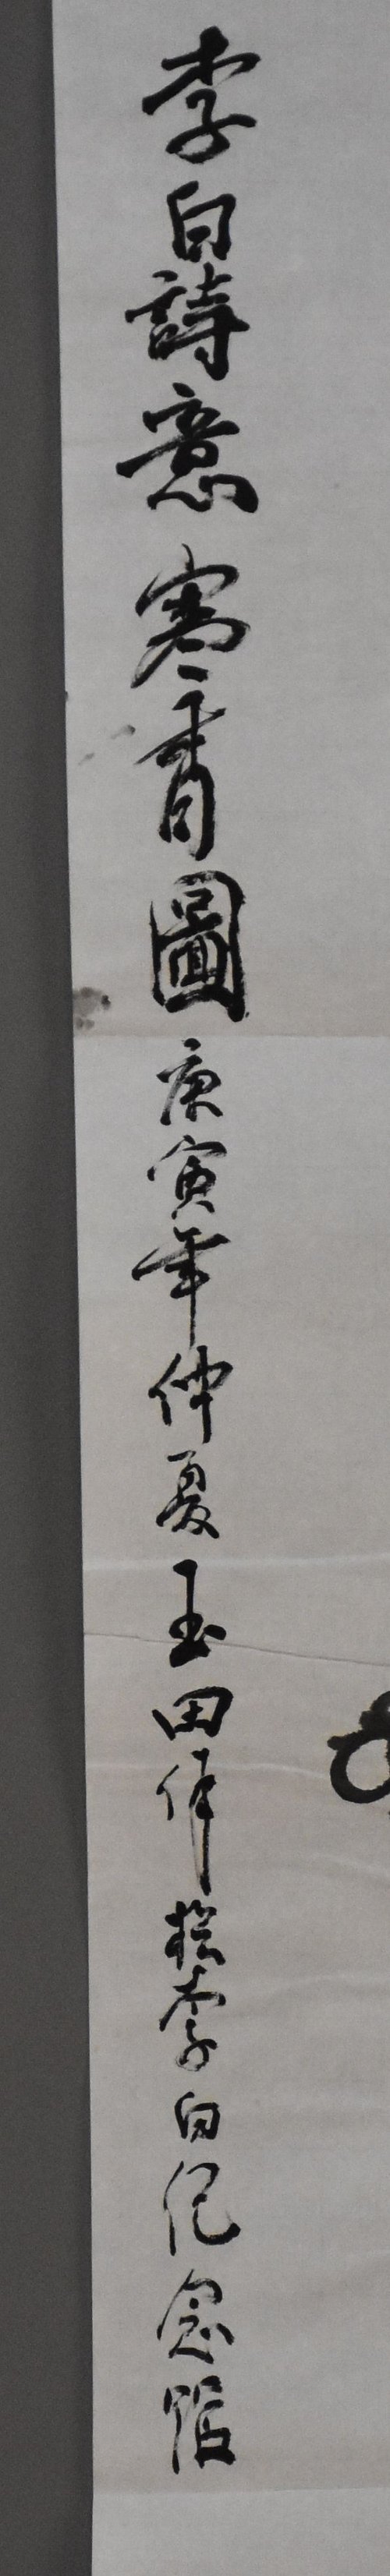 李白詩意寒香圖庚寅年仲夏玉田作於李白纪念馆